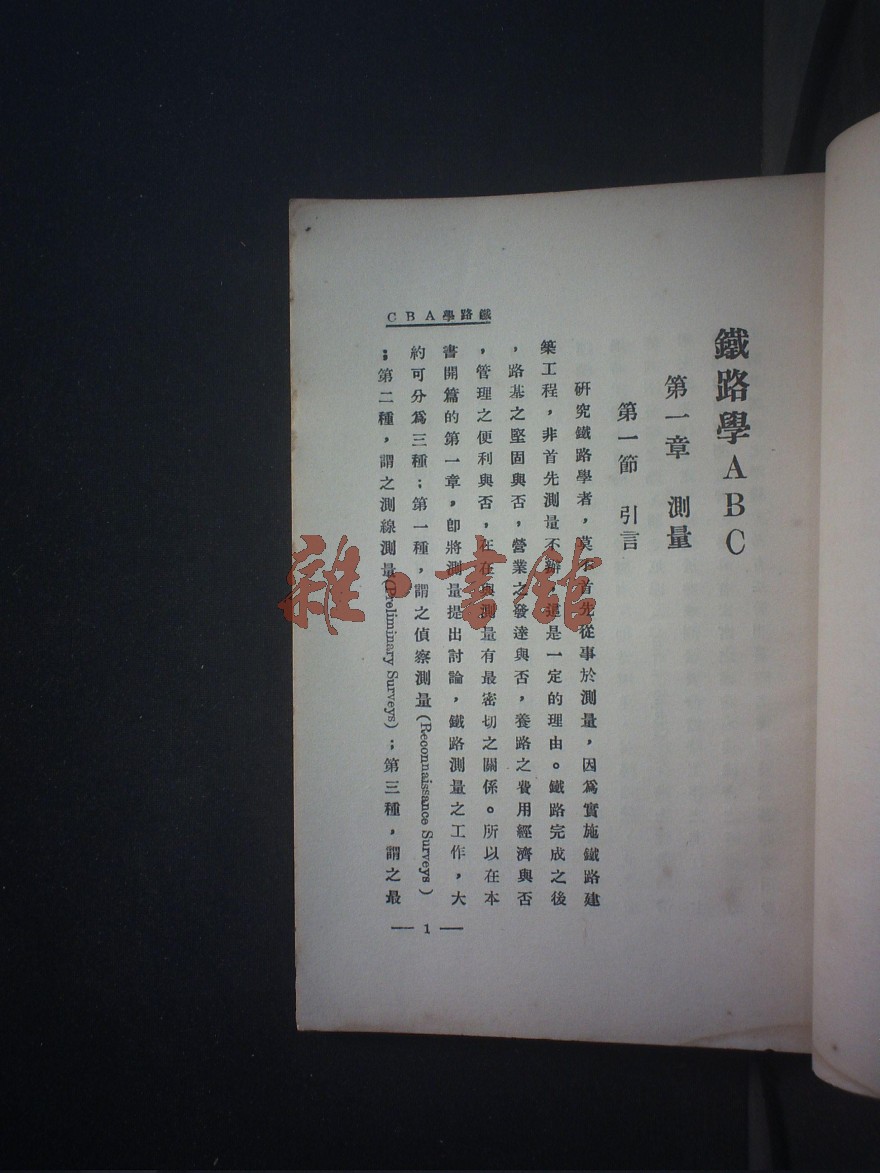 鐵路學ABC
第一章 測量
第一節 引言
研究鐵路學者，莫不首先從事於測量，因爲實施鐵路建
築工程，非首先測量不辦，這是一定的理由。鐵路完成之後
，路基之堅固與否，營業之發達與否，養路之費用經濟與否
，管理之便利與否，在在與測量有最密切之關係。所以在本
書開篇的第一章，卽將測量提出討論，鐵路測量之工作，大
約可分爲三種；第一種，謂之偵察測量(Reconnaissance Surveys)
；第二種，謂之測線測量(Preliminary Surveys)；第三種，謂之最
CBA學路鐵
— 1 —
雜·書館